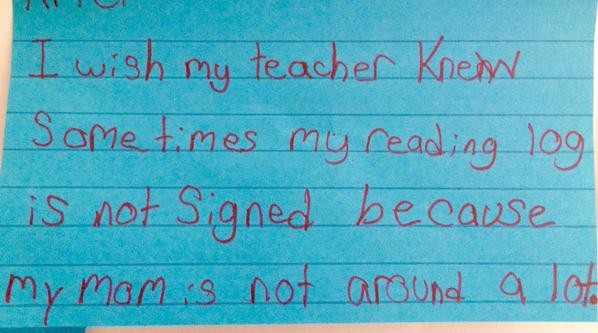 I wish my teacher Knew
Sometimes my reading log
is not Signed because
my mom is not around a lot.